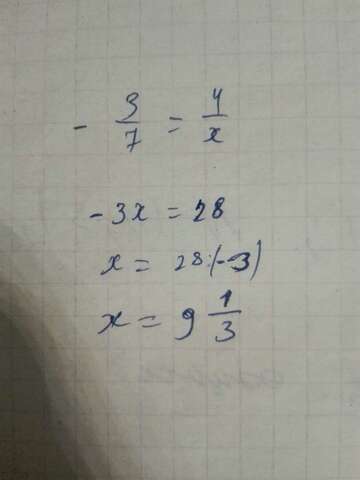 - 3/7 = 4/x
-3x = 28
x = 28:(-3)
x = 9 1/3